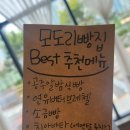 모도리빵집
Best 추천메뉴
· 공주알밤식빵
· 연유버터브레첼
· 소금빵